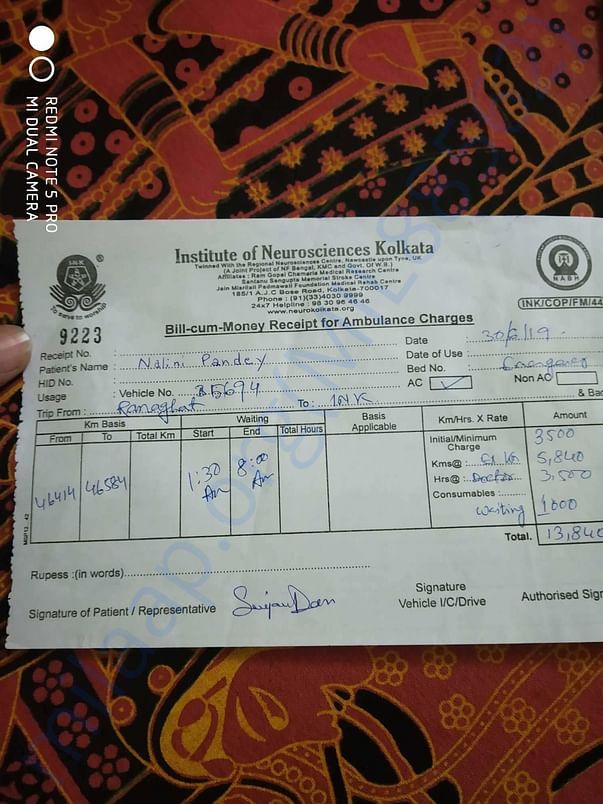 REDMI NOTE 5 PRO
MI DUAL CAMERA
INK
To serve to worship
®
Institute of Neurosciences Kolkata
Twinned With the Regional Neurosciences Centre, Newcastle upon Tyne, UK
(A Joint Project of NF Bengal, KMC and Govt. Of W.B.)
Affiliates : Ram Gopal Chamaria Medical Research Centre
Santanu Sengupta Memorial Stroke Centre
Jain Mlarilall Padmawati Foundation Medical Rehab Centre
185/1 A.J.C Bose Road, Kolkata-700017
Phone : (91)(33)4030 9999
24x7 Helpline : 98 30 96 46 46
www.neurokolkata.org
NABH
(INK/COP/FM/44
9223
Bill-cum-Money Receipt for Ambulance Charges
Receipt No. :
Date : 30/6/19
Patient's Name : Nalini Pandey
Date of Use :
HID No. :
Bed No. : Emergency
Usage : Vehicle No. B5694
AC ✓ Non AC
Trip From : Ranaghat To : INK & Bac
Km Basis Waiting Basis Applicable Km/Hrs. X Rate Amount
From To Total Km Start End Total Hours
46414 46584 1:30 Am 8:00 Am
Initial/Minimum Charge 3500
Kms@ : 5,840
Hrs@ : Doctor 3,500
Consumables :
Waiting 1000
Total. 13,840
MGP13 42
Rupess :(in words)
Signature of Patient / Representative
Signature
Vehicle I/C/Drive
Authorised Sign